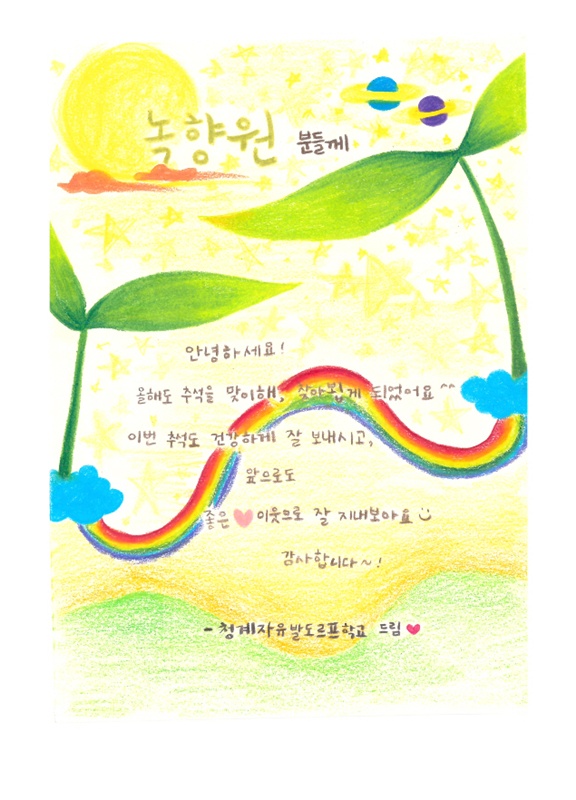 녹향원 분들께
안녕하세요!
올해도 추석을 맞이해, 찾아뵙게 되었어요^^
이번 추석도 건강하게 잘 보내시고,
앞으로도
좋은 ♥ 이웃으로 잘 지내보아요 :)
감사합니다~!
- 청계자유발도르프학교 드림♥